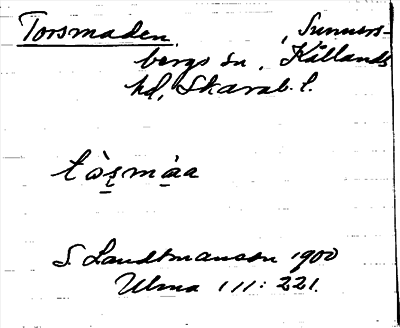 Torsmaden, Sunners-
bergs sn, Kållands
hd, Skarab. l.
tò̱ʂmà̱a
S. Landtmanson 1900
Ulma 111:221.